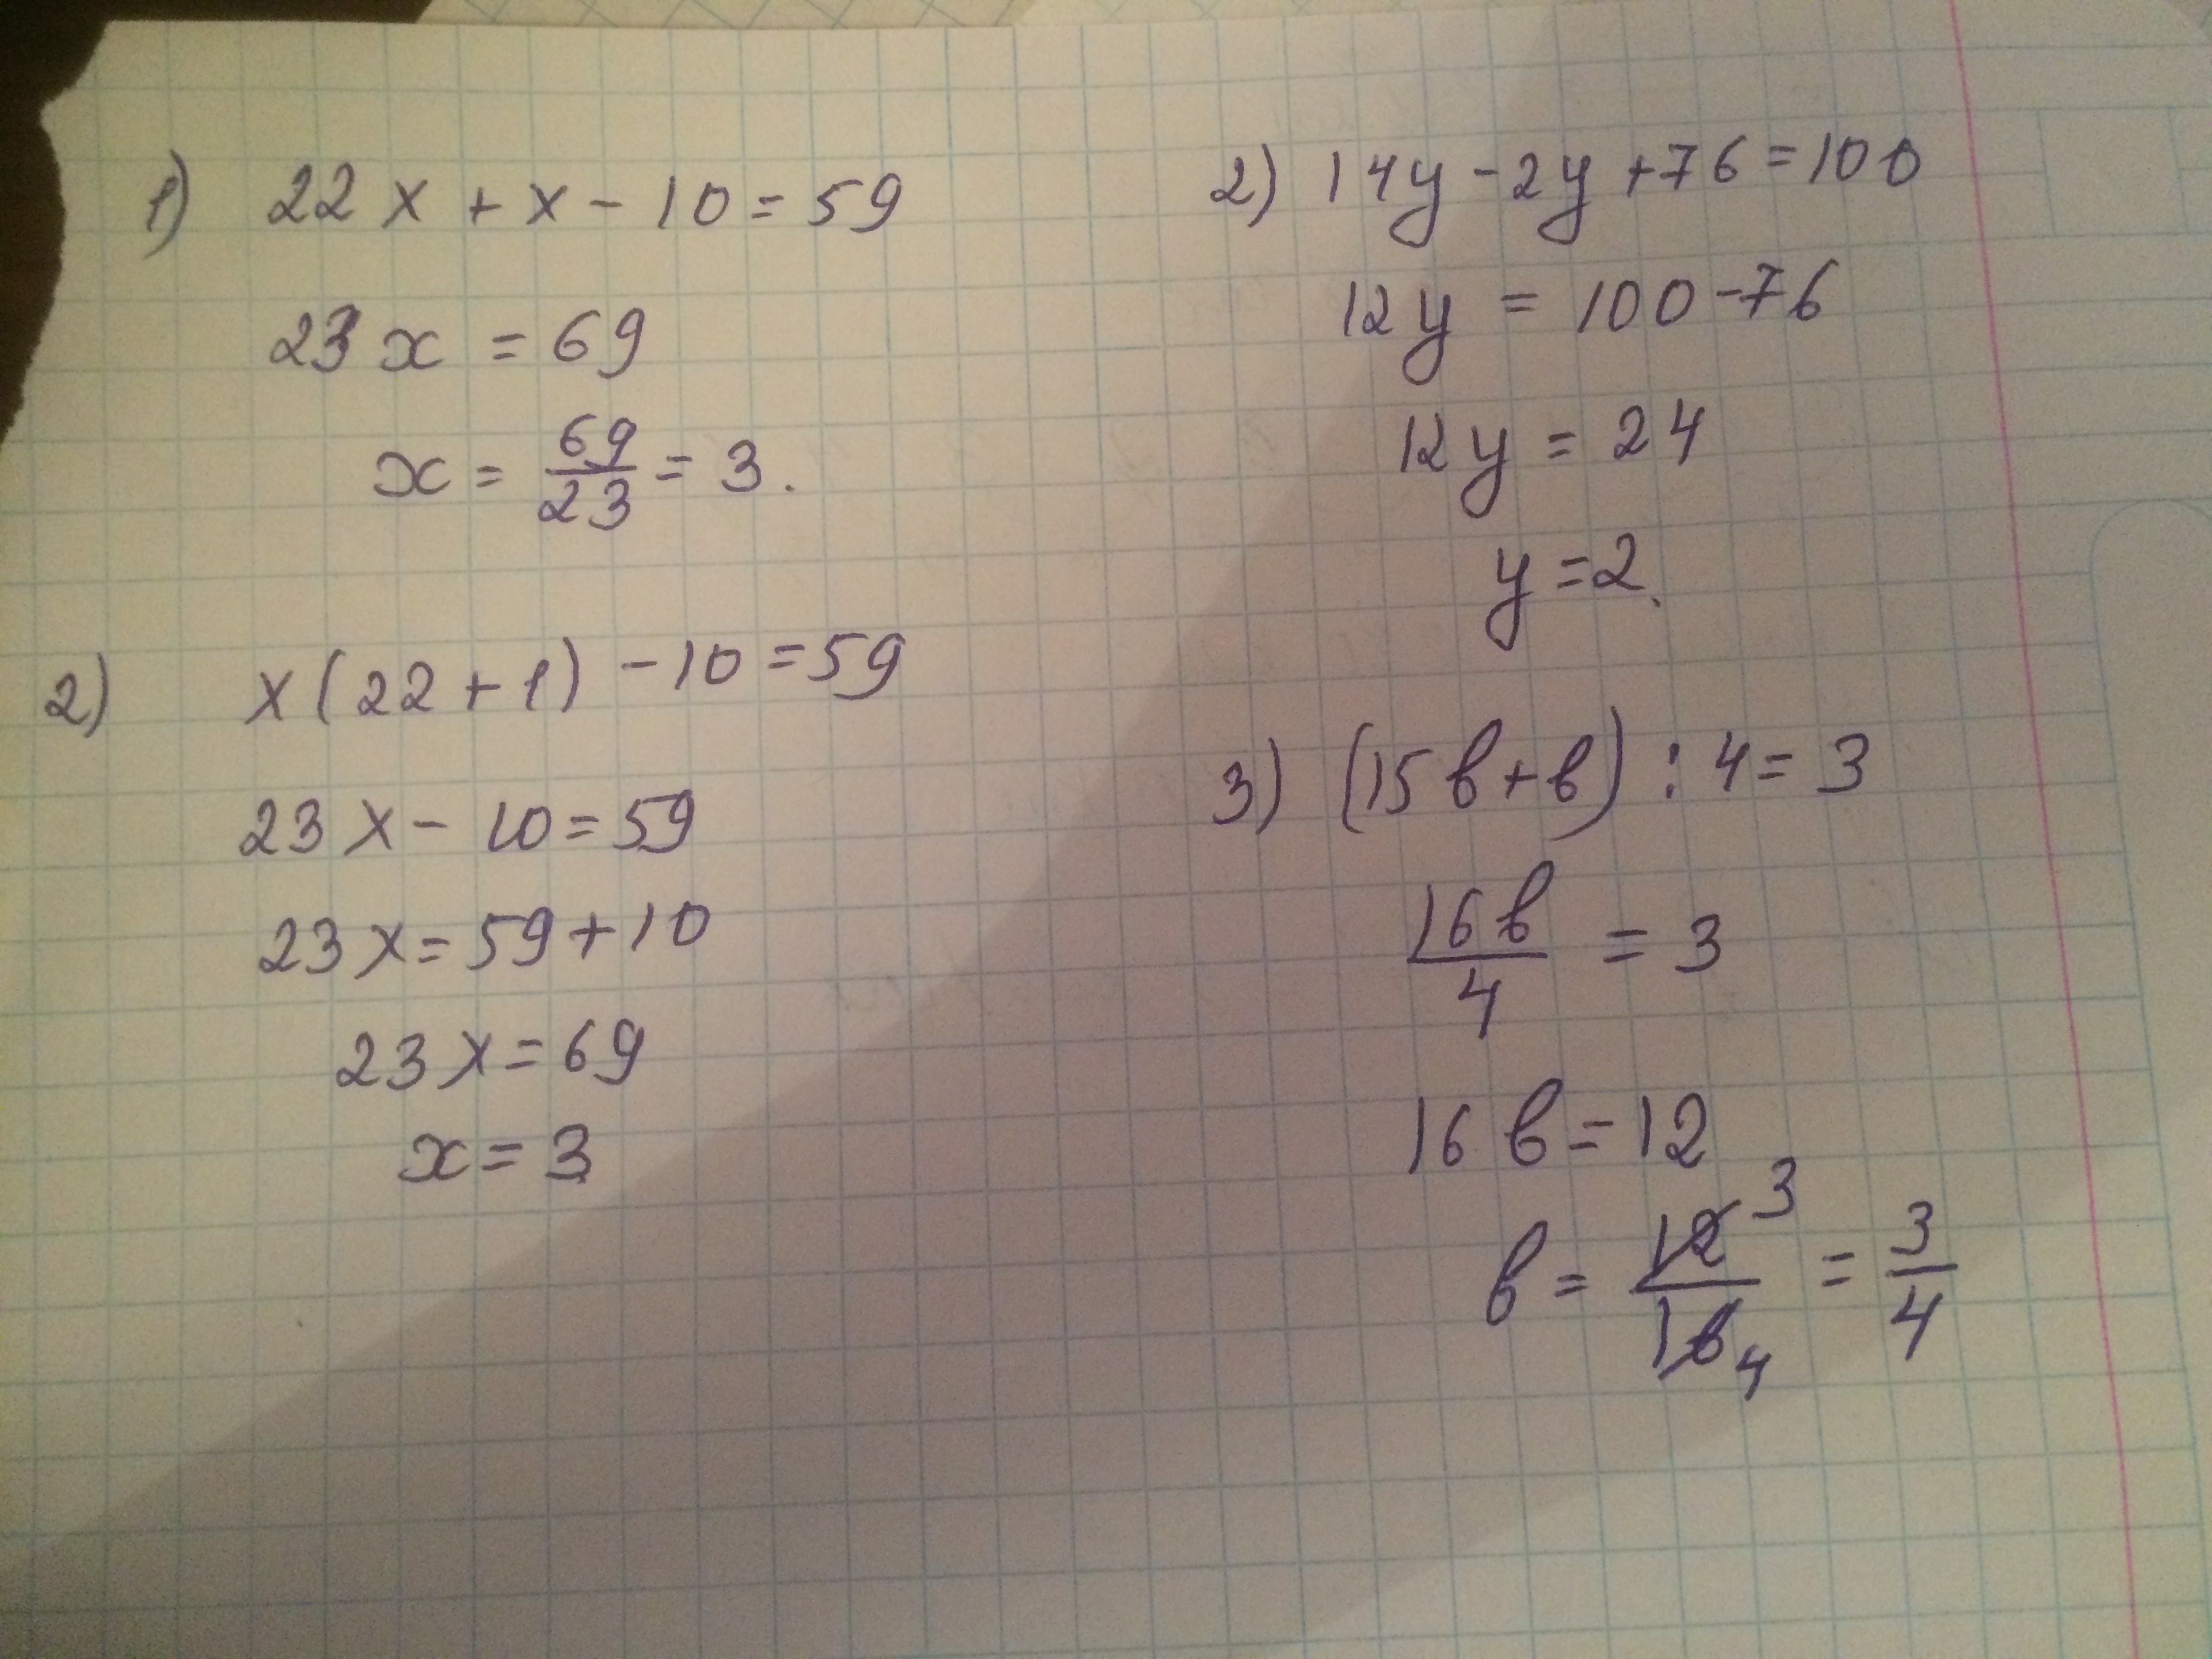 1) 22x + x - 10 = 59
23x = 69
x = 69/23 = 3.
2) x(22+1) - 10 = 59
23x - 10 = 59
23x = 59 + 10
23x = 69
x = 3
2) 14y - 2y + 76 = 100
12y = 100 - 76
12y = 24
y = 2.
3) (15в + в) : 4 = 3
16в/4 = 3
16в = 12
в = 12 3/16 4 = 3/4